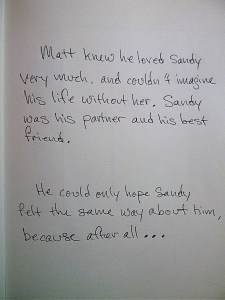 Matt knew he loved Sandy
very much, and couldn't imagine
his life without her. Sandy
was his partner and his best
friend.
He could only hope Sandy
felt the same way about him,
because after all...